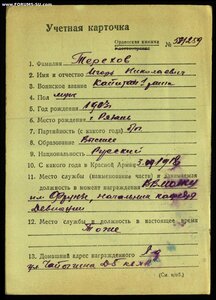 www.FORUMS-SU.com
Учетная карточка
Орденская книжка
№ 581259
1. Фамилия Терехов
2. Имя и отчество Игорь Николаевич
3. Воинское звание Капитан
4. Пол муж
5. Год рождения
6. Место рождения г. Рязань
7. Партийность (с какого года) б/п
8. Образование Высшее
9. Национальность Русский
10. С какого года в Красной Армии
11. Место службы (наименование части) и занимаемая
должность в момент награждения
им Фрунзе, начальник кафедры
Девиации
12. Место службы и должность в настоящее время
Тоже
13. Домашний адрес награжденного
ул
(См. н/об.)